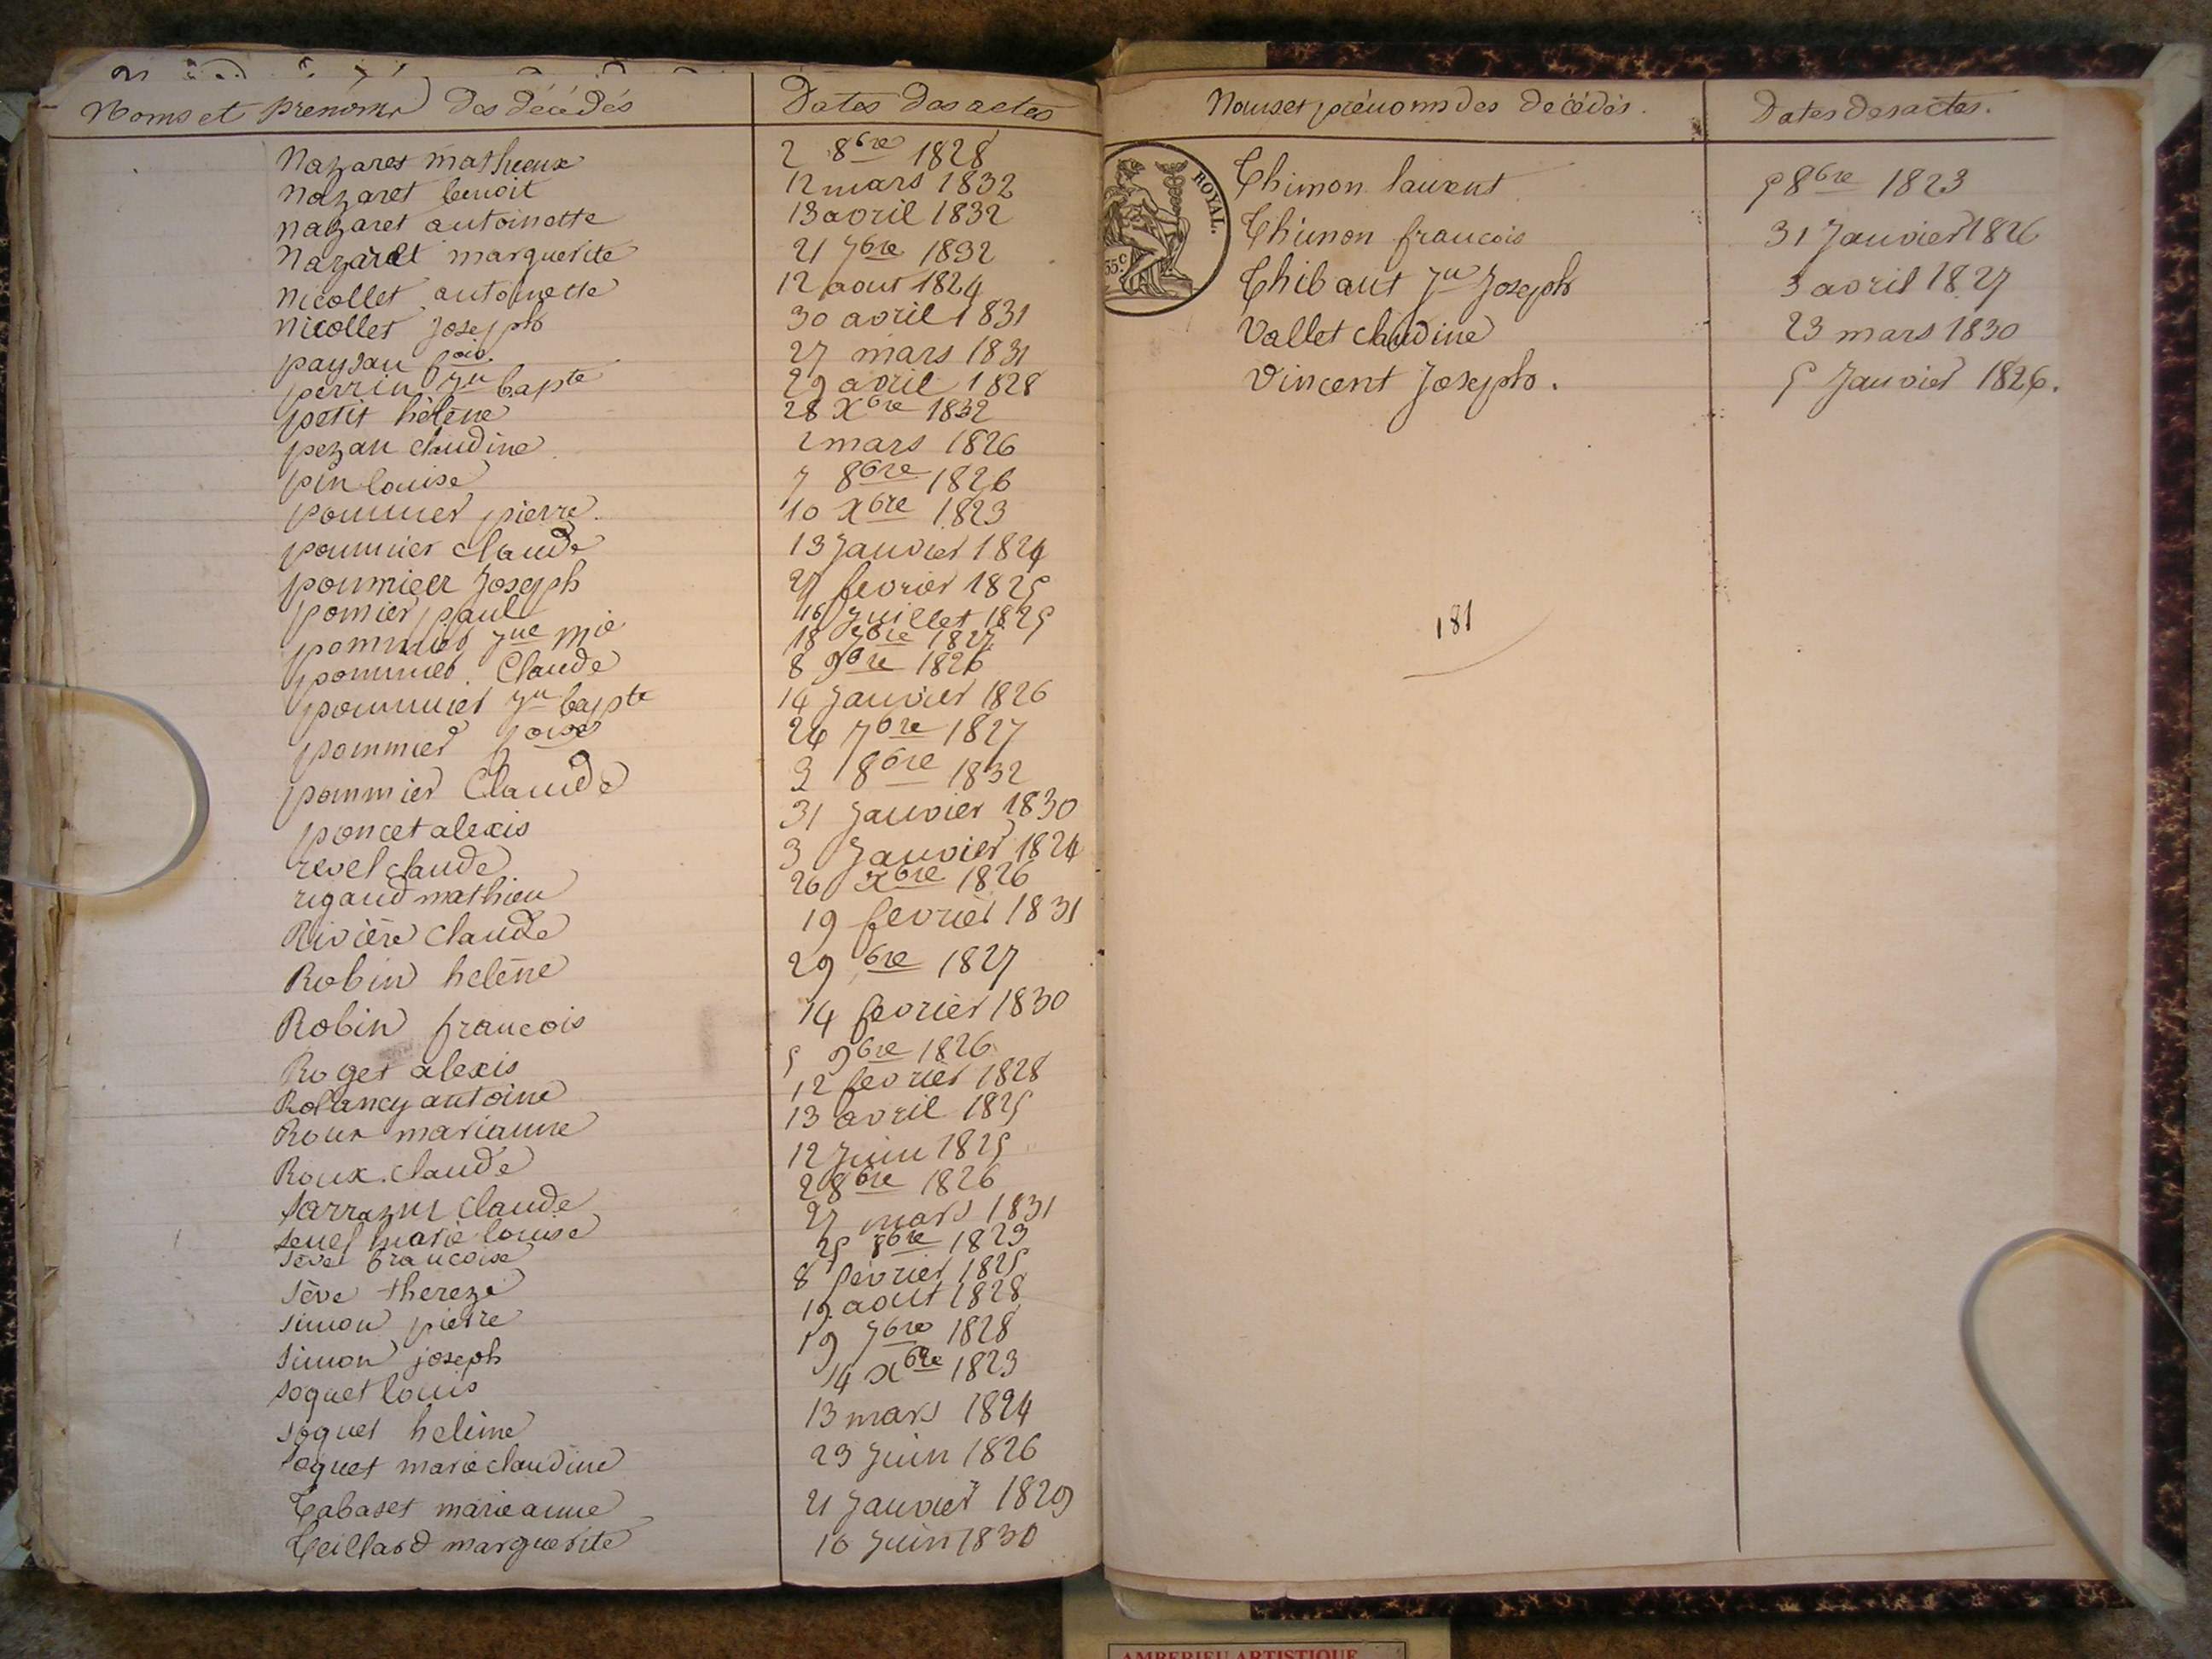 Noms et prénoms des décédés Dates des actes
Nazaret mathieux 2 8bre 1828
Nazaret benoit 12 mars 1832
nazaret antoinette 13 avril 1832
Nazaret marguerite 21 7bre 1832
Nicollet antoinette 12 aout 1824
Nicollet Joseph 30 avril 1831
paysan fois 27 mars 1831
perrin Jn bapte 29 avril 1828
petit hélène 28 Xbre 1832
pezan claudine 2 mars 1826
pin louise 7 8bre 1826
pommier pierre 10 Xbre 1823
pommier claude 13 Janvier 1824
poumier Joseph 27 fevrier 1825
pomier paul 16 Juillet 1825
pommier Jne Mie 18 7bre 1827
pommier Claude 8 9bre 1826
pommier Jn bapte 14 Janvier 1826
pommier foise 24 7bre 1827
pommier Claude 3 8bre 1832
poncet alexis 31 Janvier 1830
revel claude 3 Janvier 1824
rigaud mathieu 26 xbre 1826
Rivière Claude 19 fevrier 1831
Robin helène 29 bre 1827
Robin francois 14 fevrier 1830
Roget alexis 5 9bre 1826
Rolancy antoine 12 fevrier 1828
Roux marianne 13 avril 1825
Roux claude 12 Juin 1825
Sarrazin Claude 2 8bre 1826
marie louise 27 mars 1831
francoise 25 8bre 1823
Sève thereze 8 fevrier 1825
Simon pierre 19 aout 1828
Simon joseph 19 7bre 1828
Soquet louis 14 xbre 1823
Soquet helène 13 mars 1824
Soquet marie claudine 23 Juin 1826
Tabaset marie anne 21 Janvier 1829
Teillard marguerite 16 Juin 1830
Noms et prénoms des décédés. Dates des actes.
ROYAL.
35.c
Thimon laurent 5 8bre 1823
Thimon francois 31 Janvier 1826
Thibaut Jn Joseph 3 avril 1827
Vallet claudine 23 mars 1830
Vincent Joseph. 5 Janvier 1826.
181
AMBERIEU ARTISTIQUE